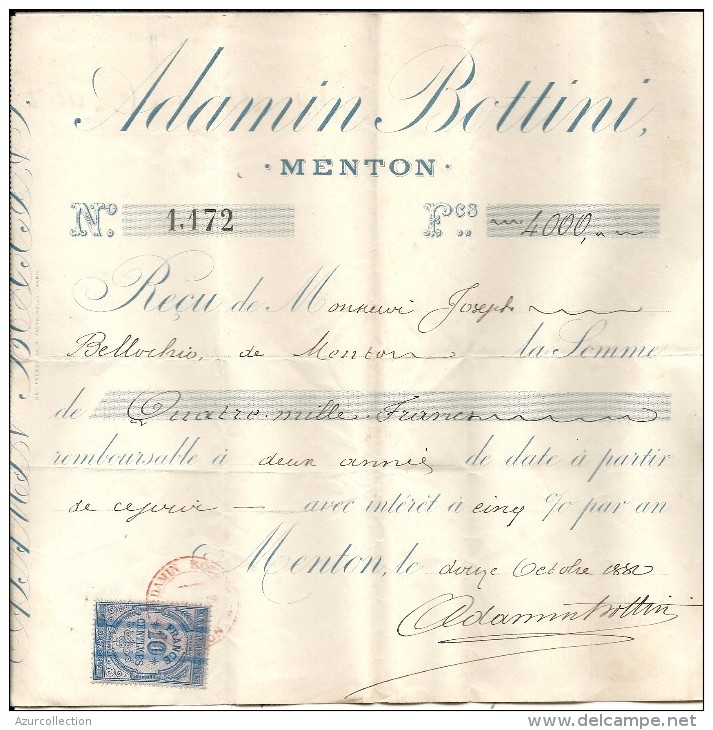 Adamin Bottini,
· MENTON ·
No. 1,172 Fcs 4000,
Reçu de Monsieur Joseph
de Menton la Somme
de Quatre mille Francs
remboursable à deux années de date à partir
de ce jour avec intérêt à cinq % par an
Menton, le douze Octobre 1882
AdaminBottini
ADAMIN BOT
FRANCE
10
CENTIMES
Azurcollection
delcampe.net